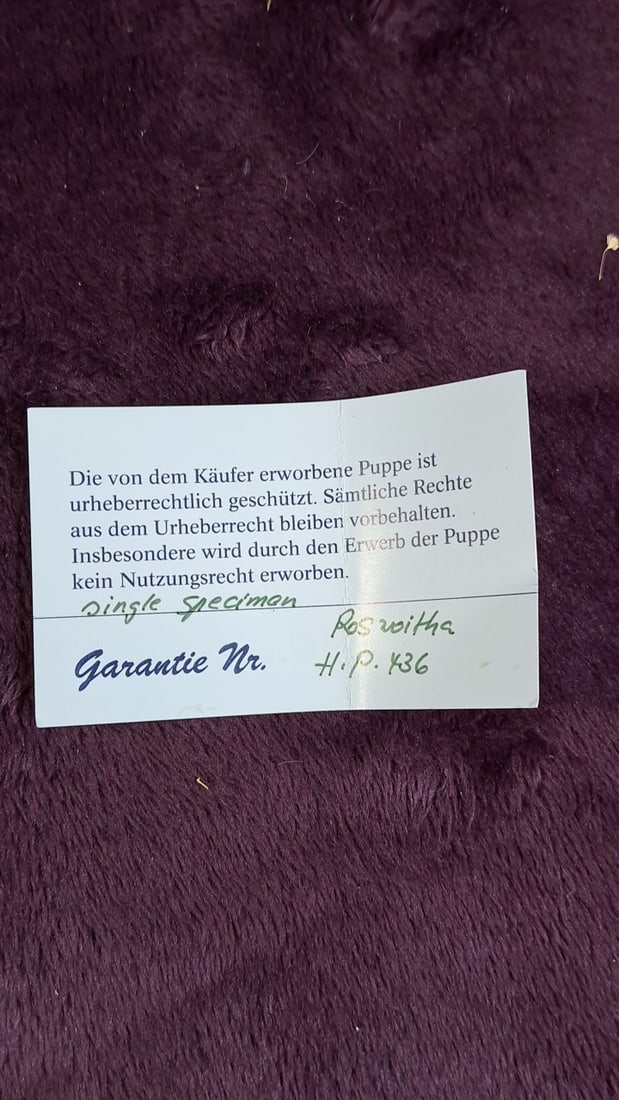 Die von dem Käufer erworbene Puppe ist
urheberrechtlich geschützt. Sämtliche Rechte
aus dem Urheberrecht bleiben vorbehalten.
Insbesondere wird durch den Erwerb der Puppe
kein Nutzungsrecht erworben.
single speciman
Roswitha
Garantie Nr. H.P. 436